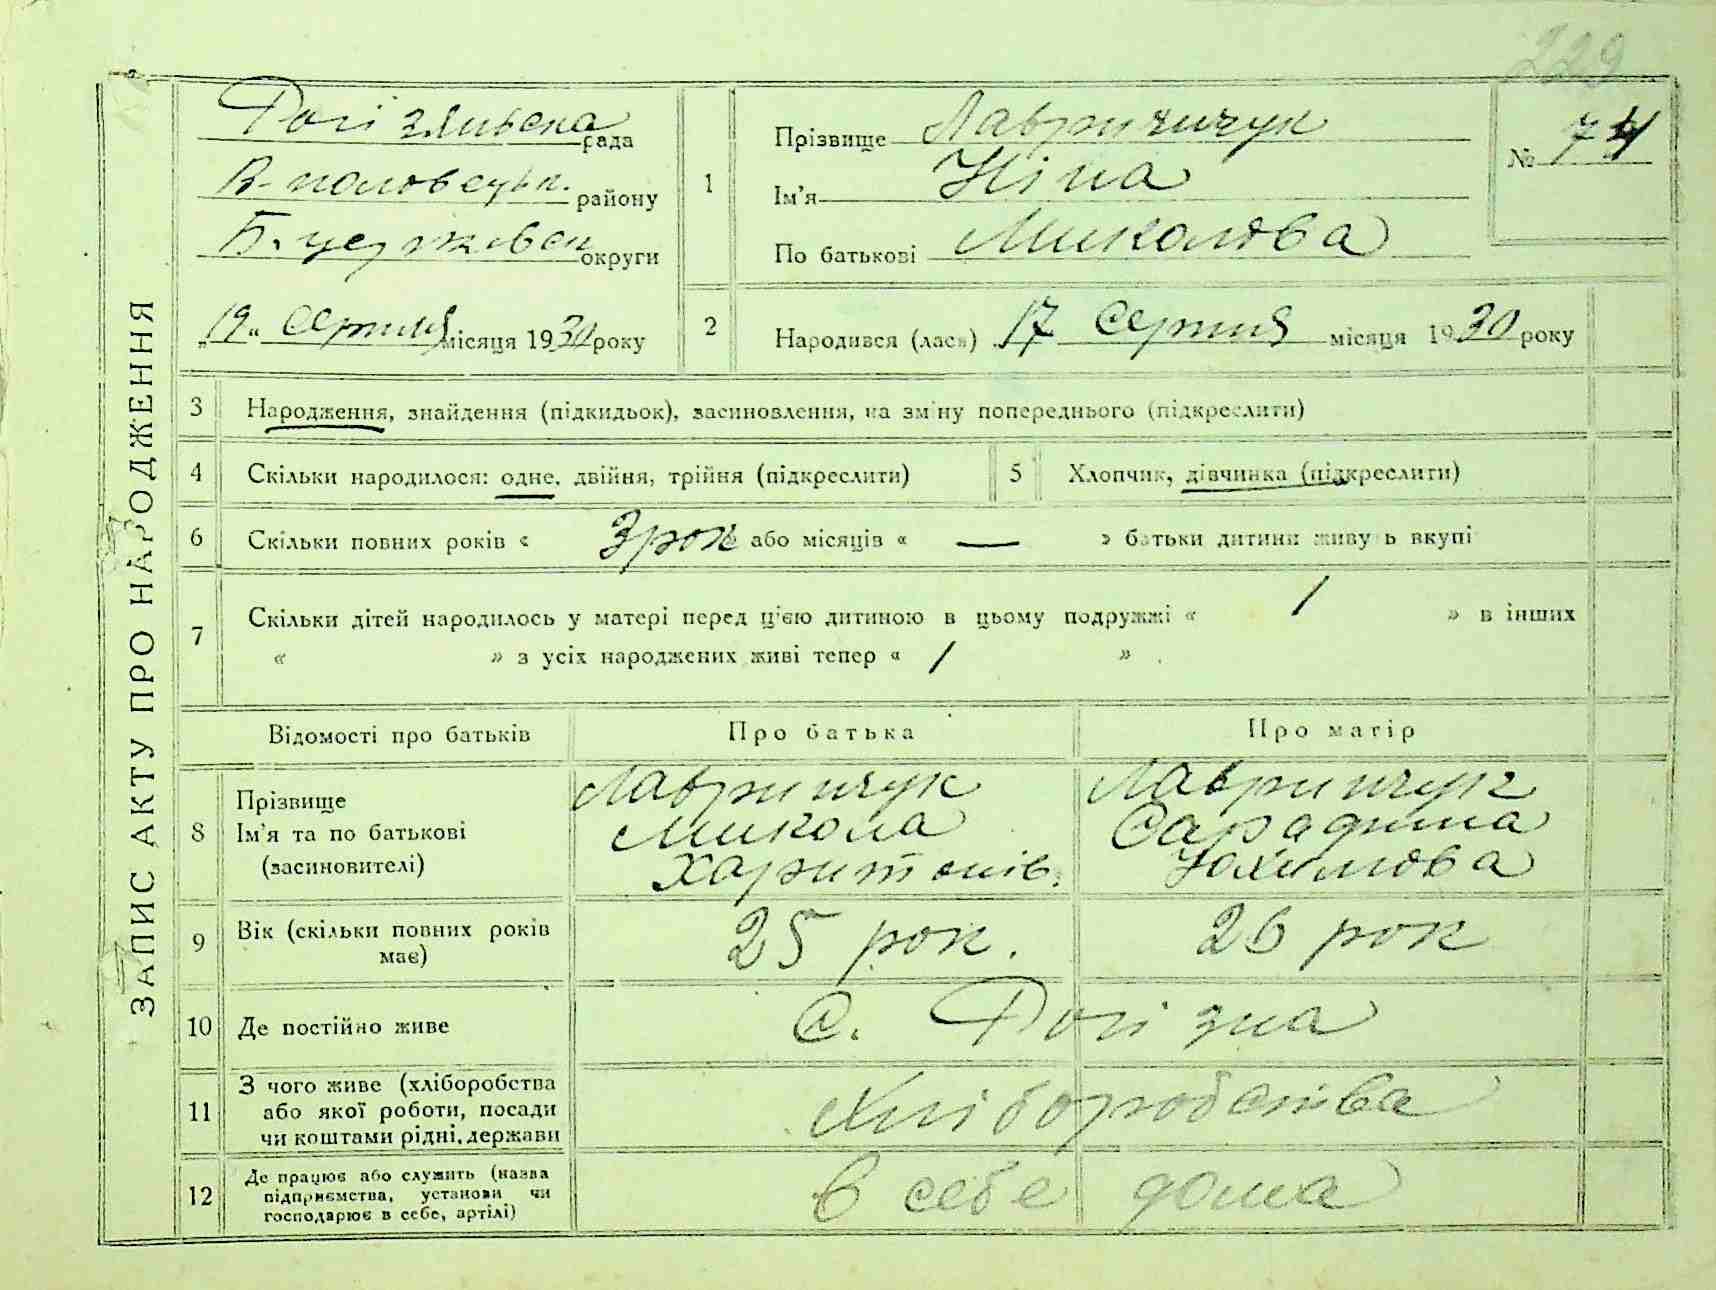 229
ЗАПИС АКТУ ПРО НАРОДЖЕННЯ
рада
В-половецьк. району
Б. церковск округи
„19“ Серпня місяця 1930 року
1
Прізвище Лавринчук
Ім'я Ніна
По батькові Миколова
№ 74
2
Народився (лася) 17 Серпня місяця 1930 року
3 Народження, знайдення (підкидьок), засиновлення, на зміну попереднього (підкреслити)
4 Скільки народилося: одне, двійня, трійня (підкреслити)
5 Хлопчик, дівчинка (підкреслити)
6 Скільки повних років « 3 рок або місяців « — » батьки дитини живуть вкупі
7 Скільки дітей народилось у матері перед цією дитиною в цьому подружжі « 1 » в інших
« » з усіх народжених живі тепер « 1 » .
Відомості про батьків Про батька Про матір
8 Прізвище
Ім'я та по батькові
(засиновителі)
Лавринчук
Микола
Харитонів.
Лавринчук
Юхимова
9 Вік (скільки повних років
має)
25 рок. 26 рок
10 Де постійно живе с. Рогізна
11 З чого живе (хліборобства
або якої роботи, посади
чи коштами рідні, держави
Хліборобства
12 Де працює або служить (назва
підприємства, установи чи
господарює в себе, артілі)
в себе дома